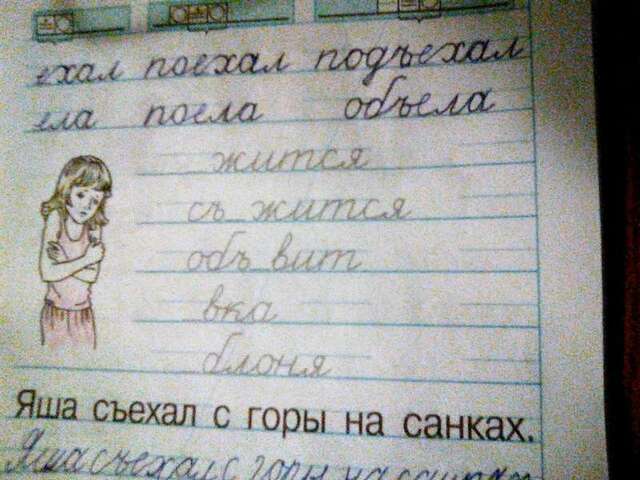 ехал поехал подъехал
ела поела объела
жится
съ жится
объ вит
вка
блоня
Яша съехал с горы на санках.
Яша съехал с горы на санках